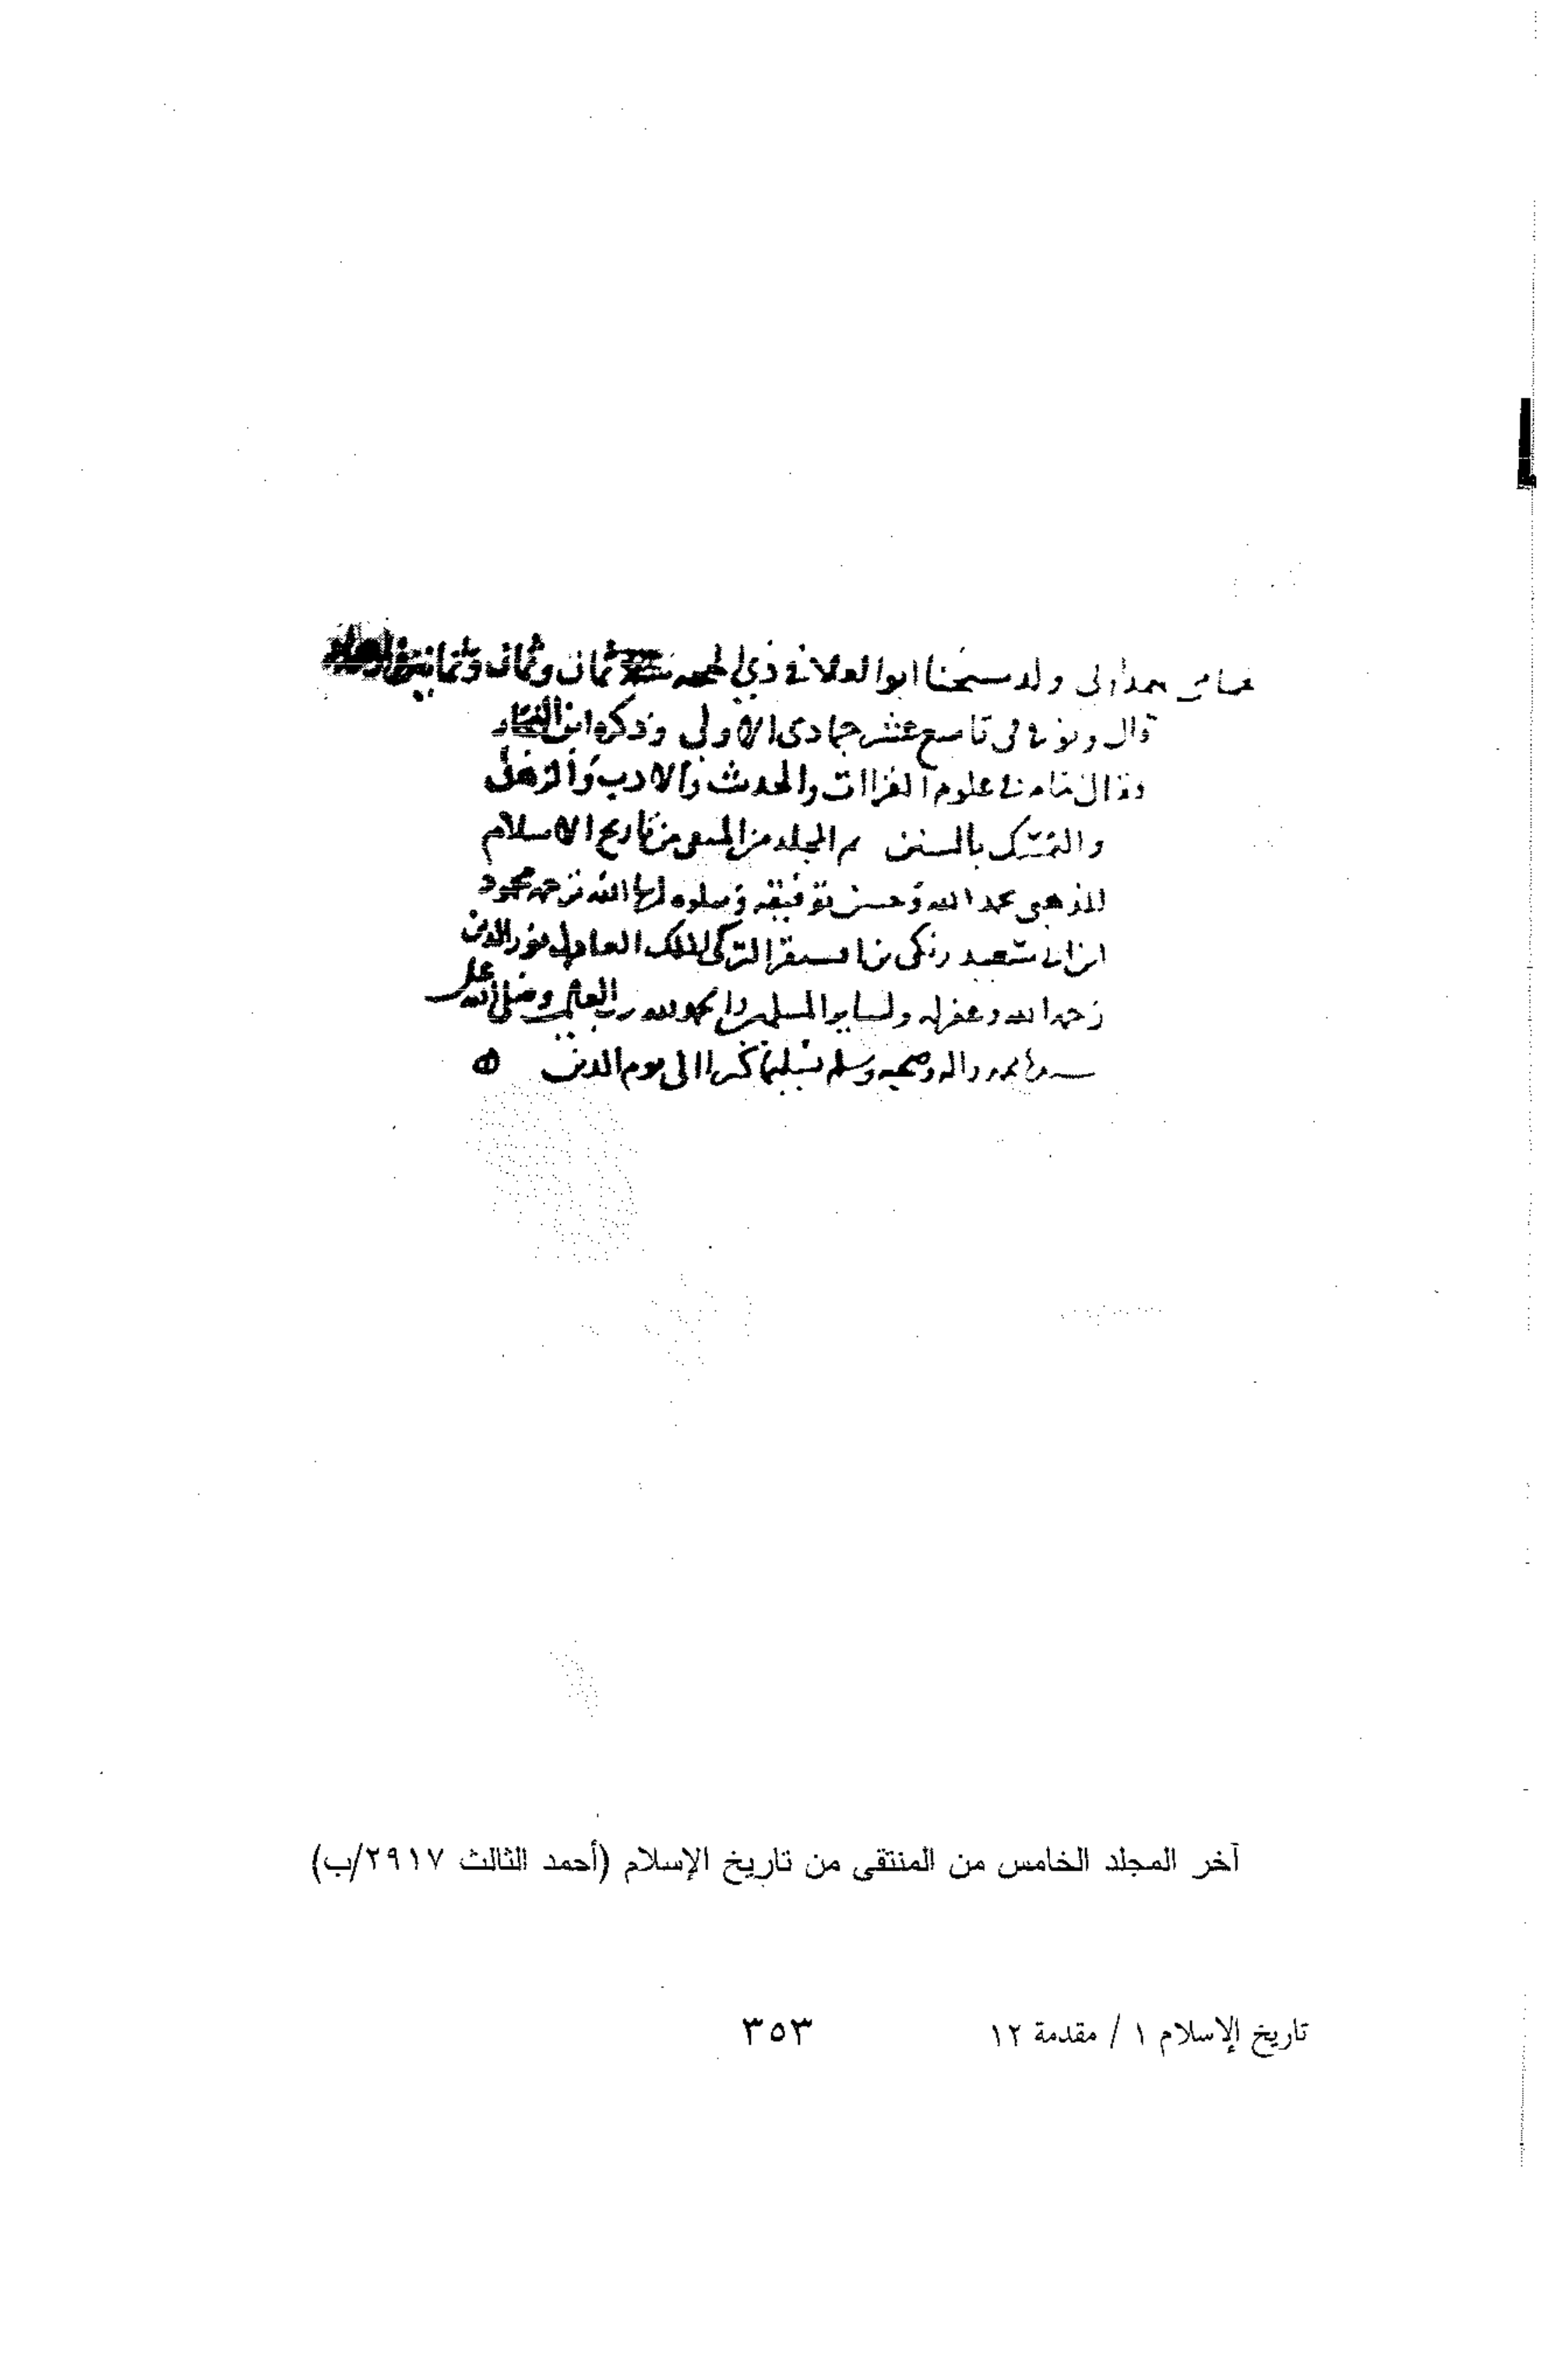 ولد شيخنا ابو العلا في ذي الحجة ثمان وثمانين
قال وتوفي في تاسع عشر جمادى الاولى وذكره ابن النجار
وقال في علوم القراات والحديث والادب والزهد
والتمسك بالسنن تم المجلد من المنتقى من تاريخ الاسلام
للذهبي بحمد الله وحسن توفيقه ويتلوه ان شا الله ترجمة محمود
ابن زنكي بن اقسنقر التركي الملك العادل نور الدين
رحمه الله وغفر له ولساير المسلمين والحمد لله رب العالمين وصلى الله على
سيدنا محمد واله وصحبه وسلم تسليما كثيرا الى يوم الدين ه
آخر المجلد الخامس من المنتقى من تاريخ الإسلام (أحمد الثالث ٢٩١٧/ب)
تاريخ الإسلام ١ / مقدمة ١٢ ٣٥٣